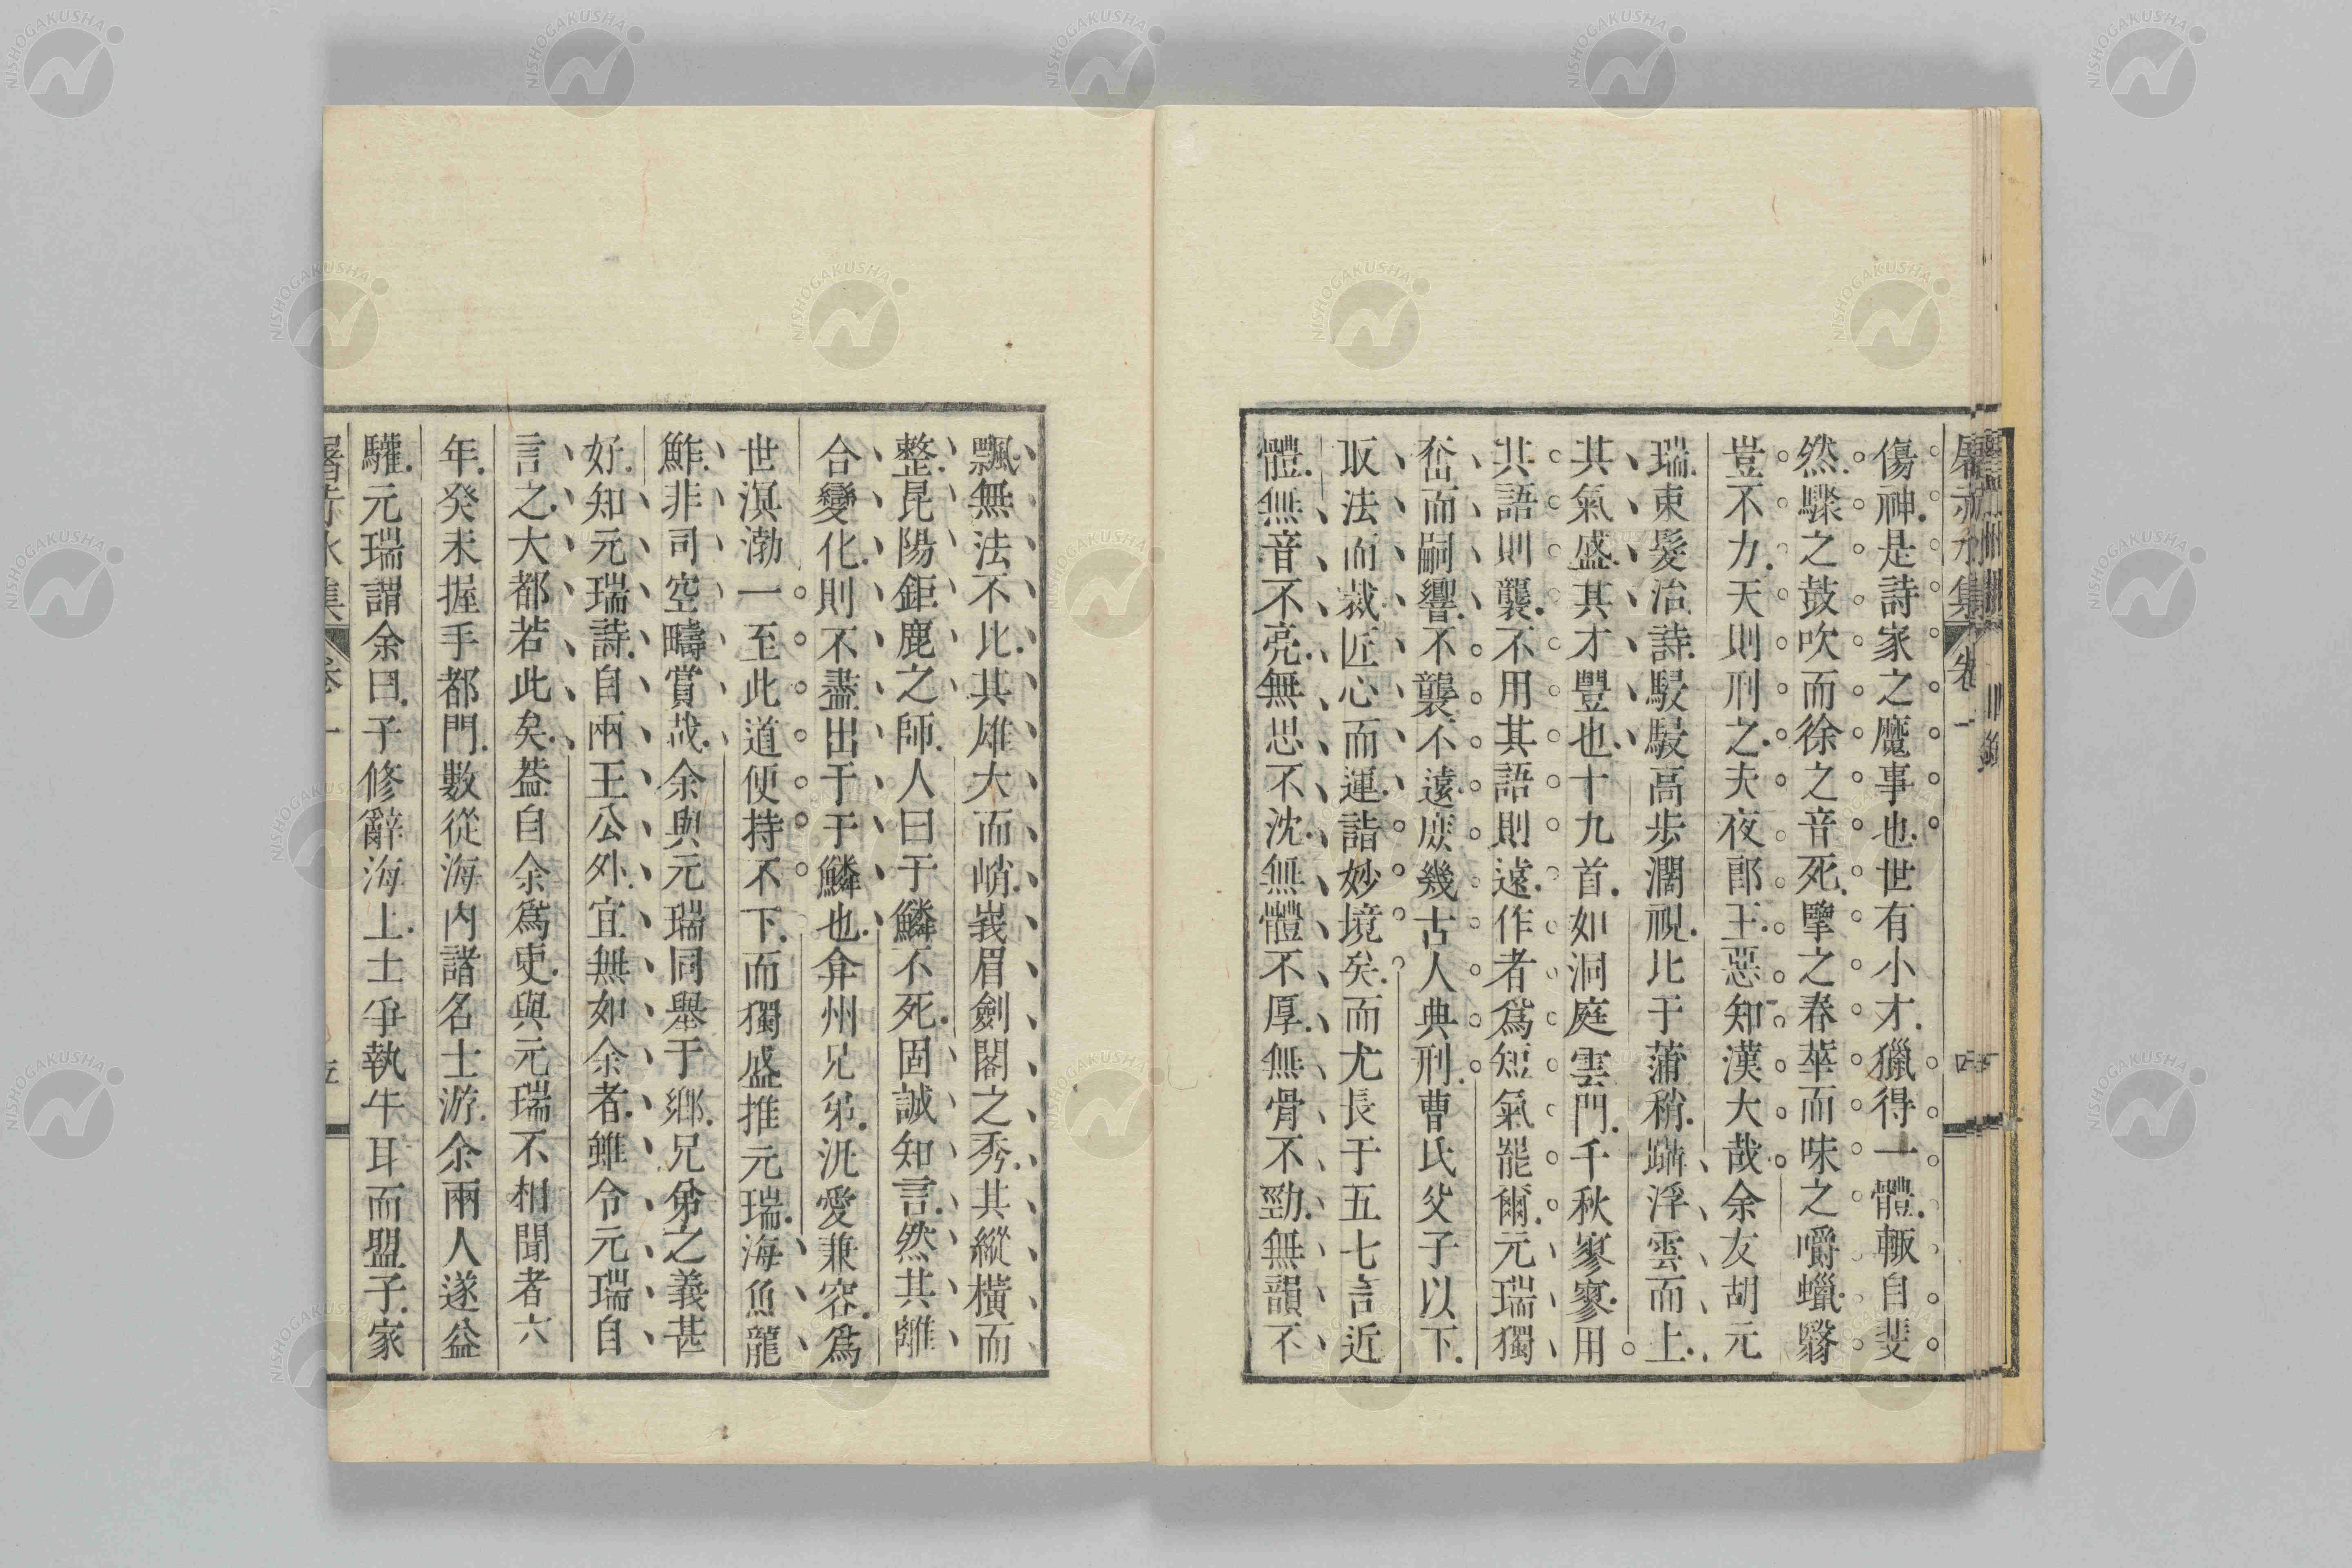 屠赤水集 卷一
傷神是詩家之魔事也世有小才獵得一體輙自斐
然驟之鼓吹而徐之音死擥之春華而味之嚼蠟繇
豈不力天則刑之夫夜郎王惡知漢大哉余友胡元
瑞束髮治詩駸駸高步濶視比于蒲稍躡浮雲而上
其氣盛其才豐也十九首如洞庭雲門千秋寥寥用
其語則襲不用其語則遠作者爲短氣罷爾元瑞獨
奮而嗣響不襲不遠庻幾古人典刑曹氏父子以下
取法而裁匠心而運詣妙境矣而尤長于五七言近
體無音不亮無思不沈無體不厚無骨不勁無韻不
飄無法不比其雄大而峭峩眉劍閣之秀其縱橫而
整昆陽鉅鹿之師人曰于鱗不死固誠知言然其離
合變化則不盡出于于鱗也弇州兄弟汎愛兼容爲
世溟渤一至此道便持不下而獨盛推元瑞海魚龍
鮓非司空疇賞哉余與元瑞同舉于鄉兄弟之義甚
好知元瑞詩自兩王公外宜無如余者雖令元瑞自
言之大都若此矣葢自余爲吏與元瑞不相聞者六
年癸未握手都門數從海內諸名士游余兩人遂益
驩元瑞謂余曰子修辭海上士爭執牛耳而盟子家